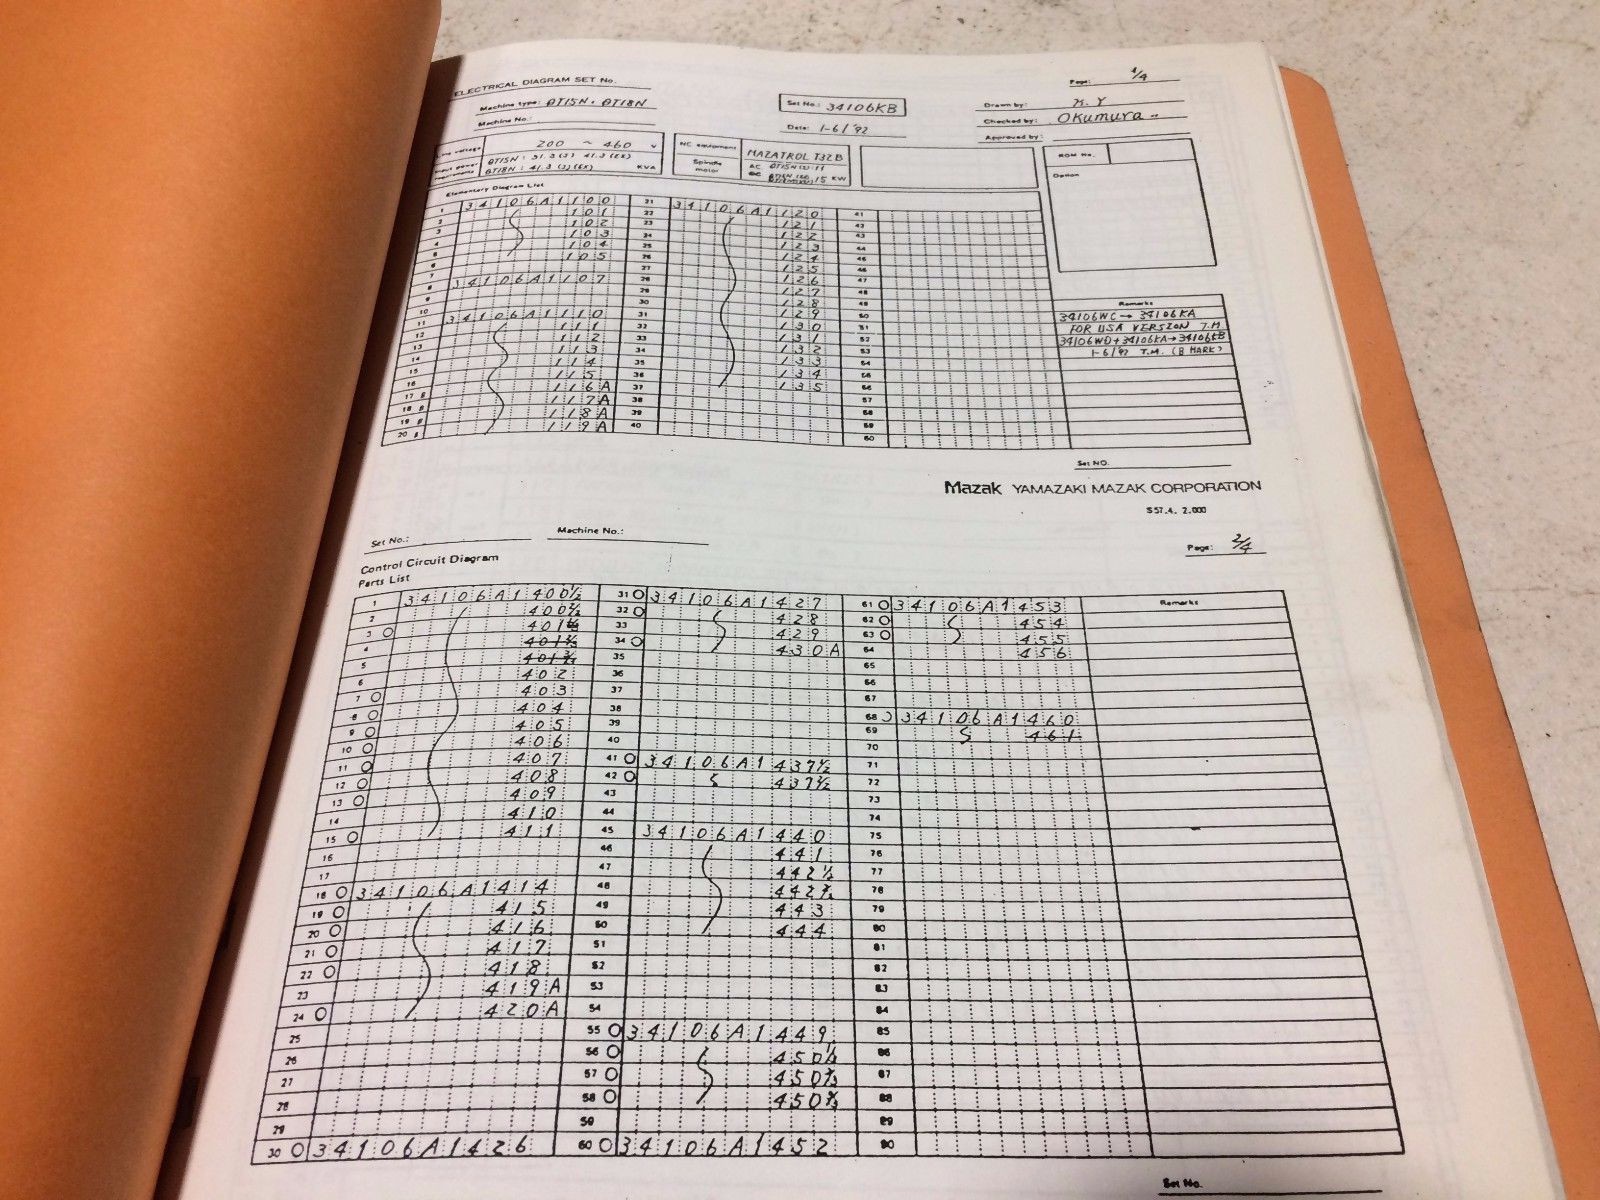 ELECTRICAL DIAGRAM SET No.
Page: 1/4
Machine type: QT15N · QT18N
Set No.: 34106KB
Drawn by: K. Y
Machine No.:
Date: 1-6/'92
Checked by: Okumura
Approved by:
voltage 200 ~ 460 v
NC equipment MAZATROL T32B
ROM No.
Input power requirements QT15N : 31.3 (J) 41.3 (EX)
QT18N : 41.3 (J)(EX) KVA
Spindle motor AC QT15N (J) : 11
15 KW
Option
Elementary Diagram List
1 34106A1100 21 34106A1120 41
2 101 22 121 42
3 102 23 122 43
4 103 24 123 44
5 104 25 124 45
6 105 26 125 46
7 27 126 47
8 34106A1107 28 127 48
9 29 128 49
10 30 129 50
11 34106A1110 31 130 51
12 111 32 131 52
13 112 33 132 53
14 113 34 133 54
15 114 35 134 55
16 115 36 135 56
17 116A 37 57
18 117A 38 58
19 118A 39 59
20 119A 40 60
Remarks
34106WC → 34106KA
FOR USA VERSION T.M
34106WD + 34106KA → 34106KB
1-6/'92 T.M. (B MARK)
Set NO.
Mazak YAMAZAKI MAZAK CORPORATION
S57.4. 2,000
Set No.: Machine No.:
Page: 2/4
Control Circuit Diagram
Parts List
1 34106A1400½ 31 ○ 34106A1427 61 ○ 34106A1453 Remarks
2 400 2/2 32 ○ 428 62 ○ 454
3 ○ 401 33 429 63 ○ 455
4 401 34 ○ 430A 64 456
5 401 35 65
6 402 36 66
7 ○ 403 37 67
8 ○ 404 38 68 ○ 34106A1460
9 ○ 405 39 69 461
10 ○ 406 40 70
11 ○ 407 41 ○ 34106A1437½ 71
12 ○ 408 42 ○ 437 2/2 72
13 ○ 409 43 73
14 410 44 74
15 ○ 411 45 34106A1440 75
16 46 441 76
17 47 442½ 77
18 ○ 34106A1414 48 442 2/2 78
19 ○ 415 49 443 79
20 ○ 416 50 444 80
21 ○ 417 51 81
22 ○ 418 52 82
23 419A 53 83
24 ○ 420A 54 84
25 55 ○ 34106A1449 85
26 56 ○ 450 1/3 86
27 57 ○ 450 2/3 87
28 58 ○ 450 3/3 88
29 59 89
30 ○ 34106A1426 60 ○ 34106A1452 90
Set No.